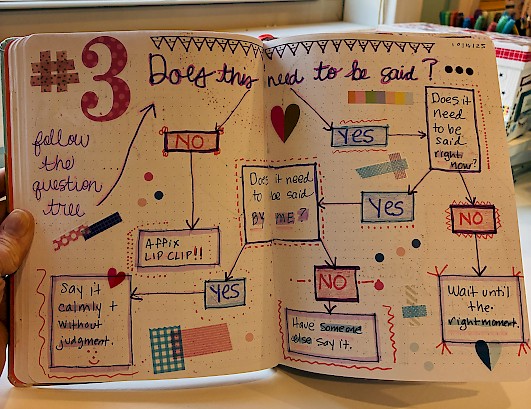 #3
Does this need to be said? ...
10/4/25
follow
the
question
tree
NO
YES
Does it
need
to be
said
right
now?
Does it need
to be said
BY ME?
YES
NO
Affix
LIP CLIP!!
YES
NO
Say it
calmly +
without
judgment.
Have someone
else say it.
Wait until
the
right moment.